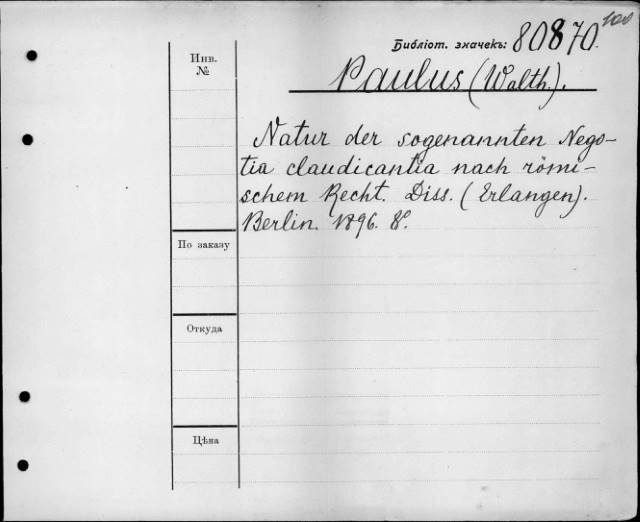 Библіот. значекъ: 80870.
Инв.
№
Paulus (Walth.).
Natur der sogenannten Nego-
tia claudicantia nach römi-
schem Recht. Diss. (Erlangen).
Berlin. 1896. 8º.
По заказу
Откуда
Цѣна